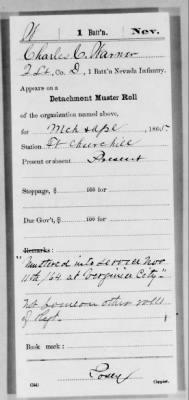 W | 1 Batt'n. | Nev.
Charles C. Warner
2 Lt, Co. D, 1 Batt'n Nevada Infantry.
Appears on a
Detachment Muster Roll
of the organization named above,
for Mch & Apl, 1865
Station Ft Churchill
Present or absent Present
Stoppage, $ 100 for
Due Gov't, $ 100 for
Remarks:
"Mustered into service Nov
11th/64 at Virginia City"
Not borne on other rolls
of Dept.
Book mark:
Copyist.